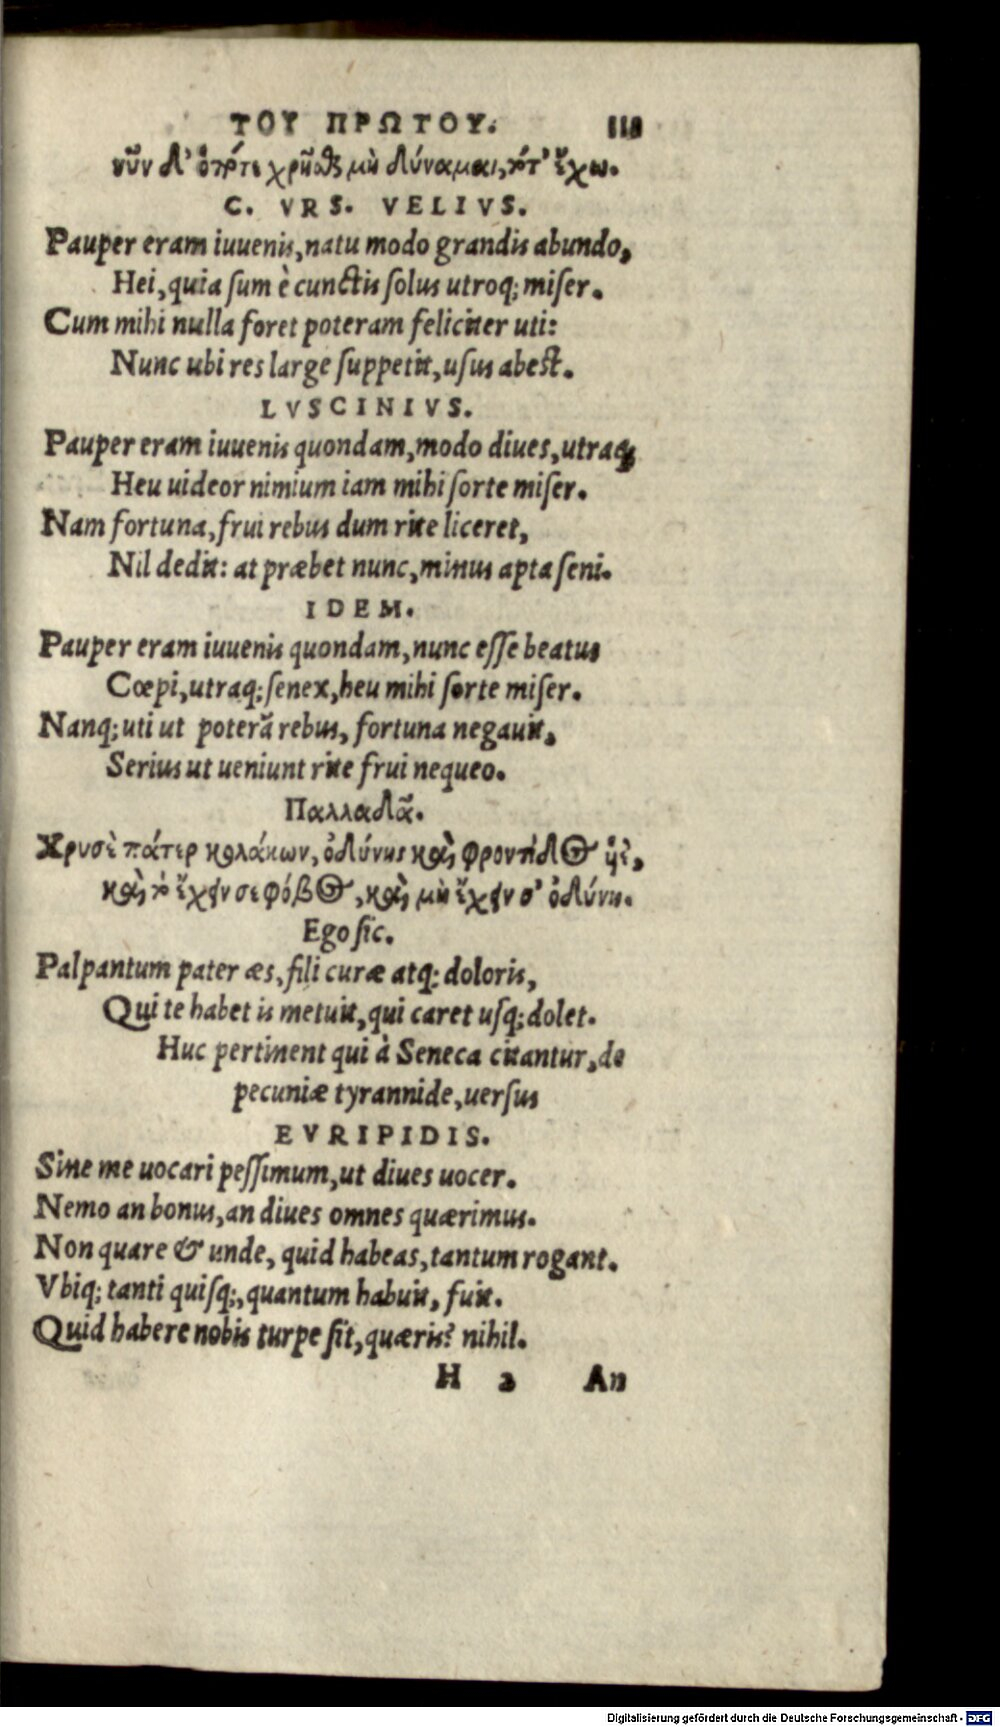 ΤΟΥ ΠΡΩΤΟΥ.
νῦν δ' ὁπότε χρῆσθαι μὴ δύναμαι, τότ' ἔχω.
C. VRS. VELIVS.
Pauper eram iuuenis, natu modo grandis abundo,
Hei, quia sum è cunctis solus utroq; miser.
Cum mihi nulla foret poteram feliciter uti:
Nunc ubi res large suppetit, usus abest.
LVSCINIVS.
Pauper eram iuuenis quondam, modo diues, utraq;
Heu uideor nimium iam mihi sorte miser.
Nam fortuna, frui rebus dum rite liceret,
Nil dedit: at præbet nunc, minus apta seni.
IDEM.
Pauper eram iuuenis quondam, nunc esse beatus
Cœpi, utraq; senex, heu mihi sorte miser.
Nanq; uti ut poterã rebus, fortuna negauit,
Serius ut ueniunt rite frui nequeo.
Παλλαδᾶ.
Χρυσὲ πάτερ κολάκων, ὀδύνης καὶ φροντίδος υἱὲ,
καὶ τὸ ἔχειν σε φόβος, καὶ μὴ ἔχειν σ' ὀδύνη.
Ego sic.
Palpantum pater æs, fili curæ atq; doloris,
Qui te habet is metuit, qui caret usq; dolet.
Huc pertinent qui à Seneca citantur, de
pecuniæ tyrannide, uersus
EVRIPIDIS.
Sine me uocari pessimum, ut diues uocer.
Nemo an bonus, an diues omnes quærimus.
Non quare & unde, quid habeas, tantum rogant.
Vbiq; tanti quisq;, quantum habuit, fuit.
Quid habere nobis turpe sit, quæris? nihil.
H 2 An
Digitalisierung gefördert durch die Deutsche Forschungsgemeinschaft - DFG